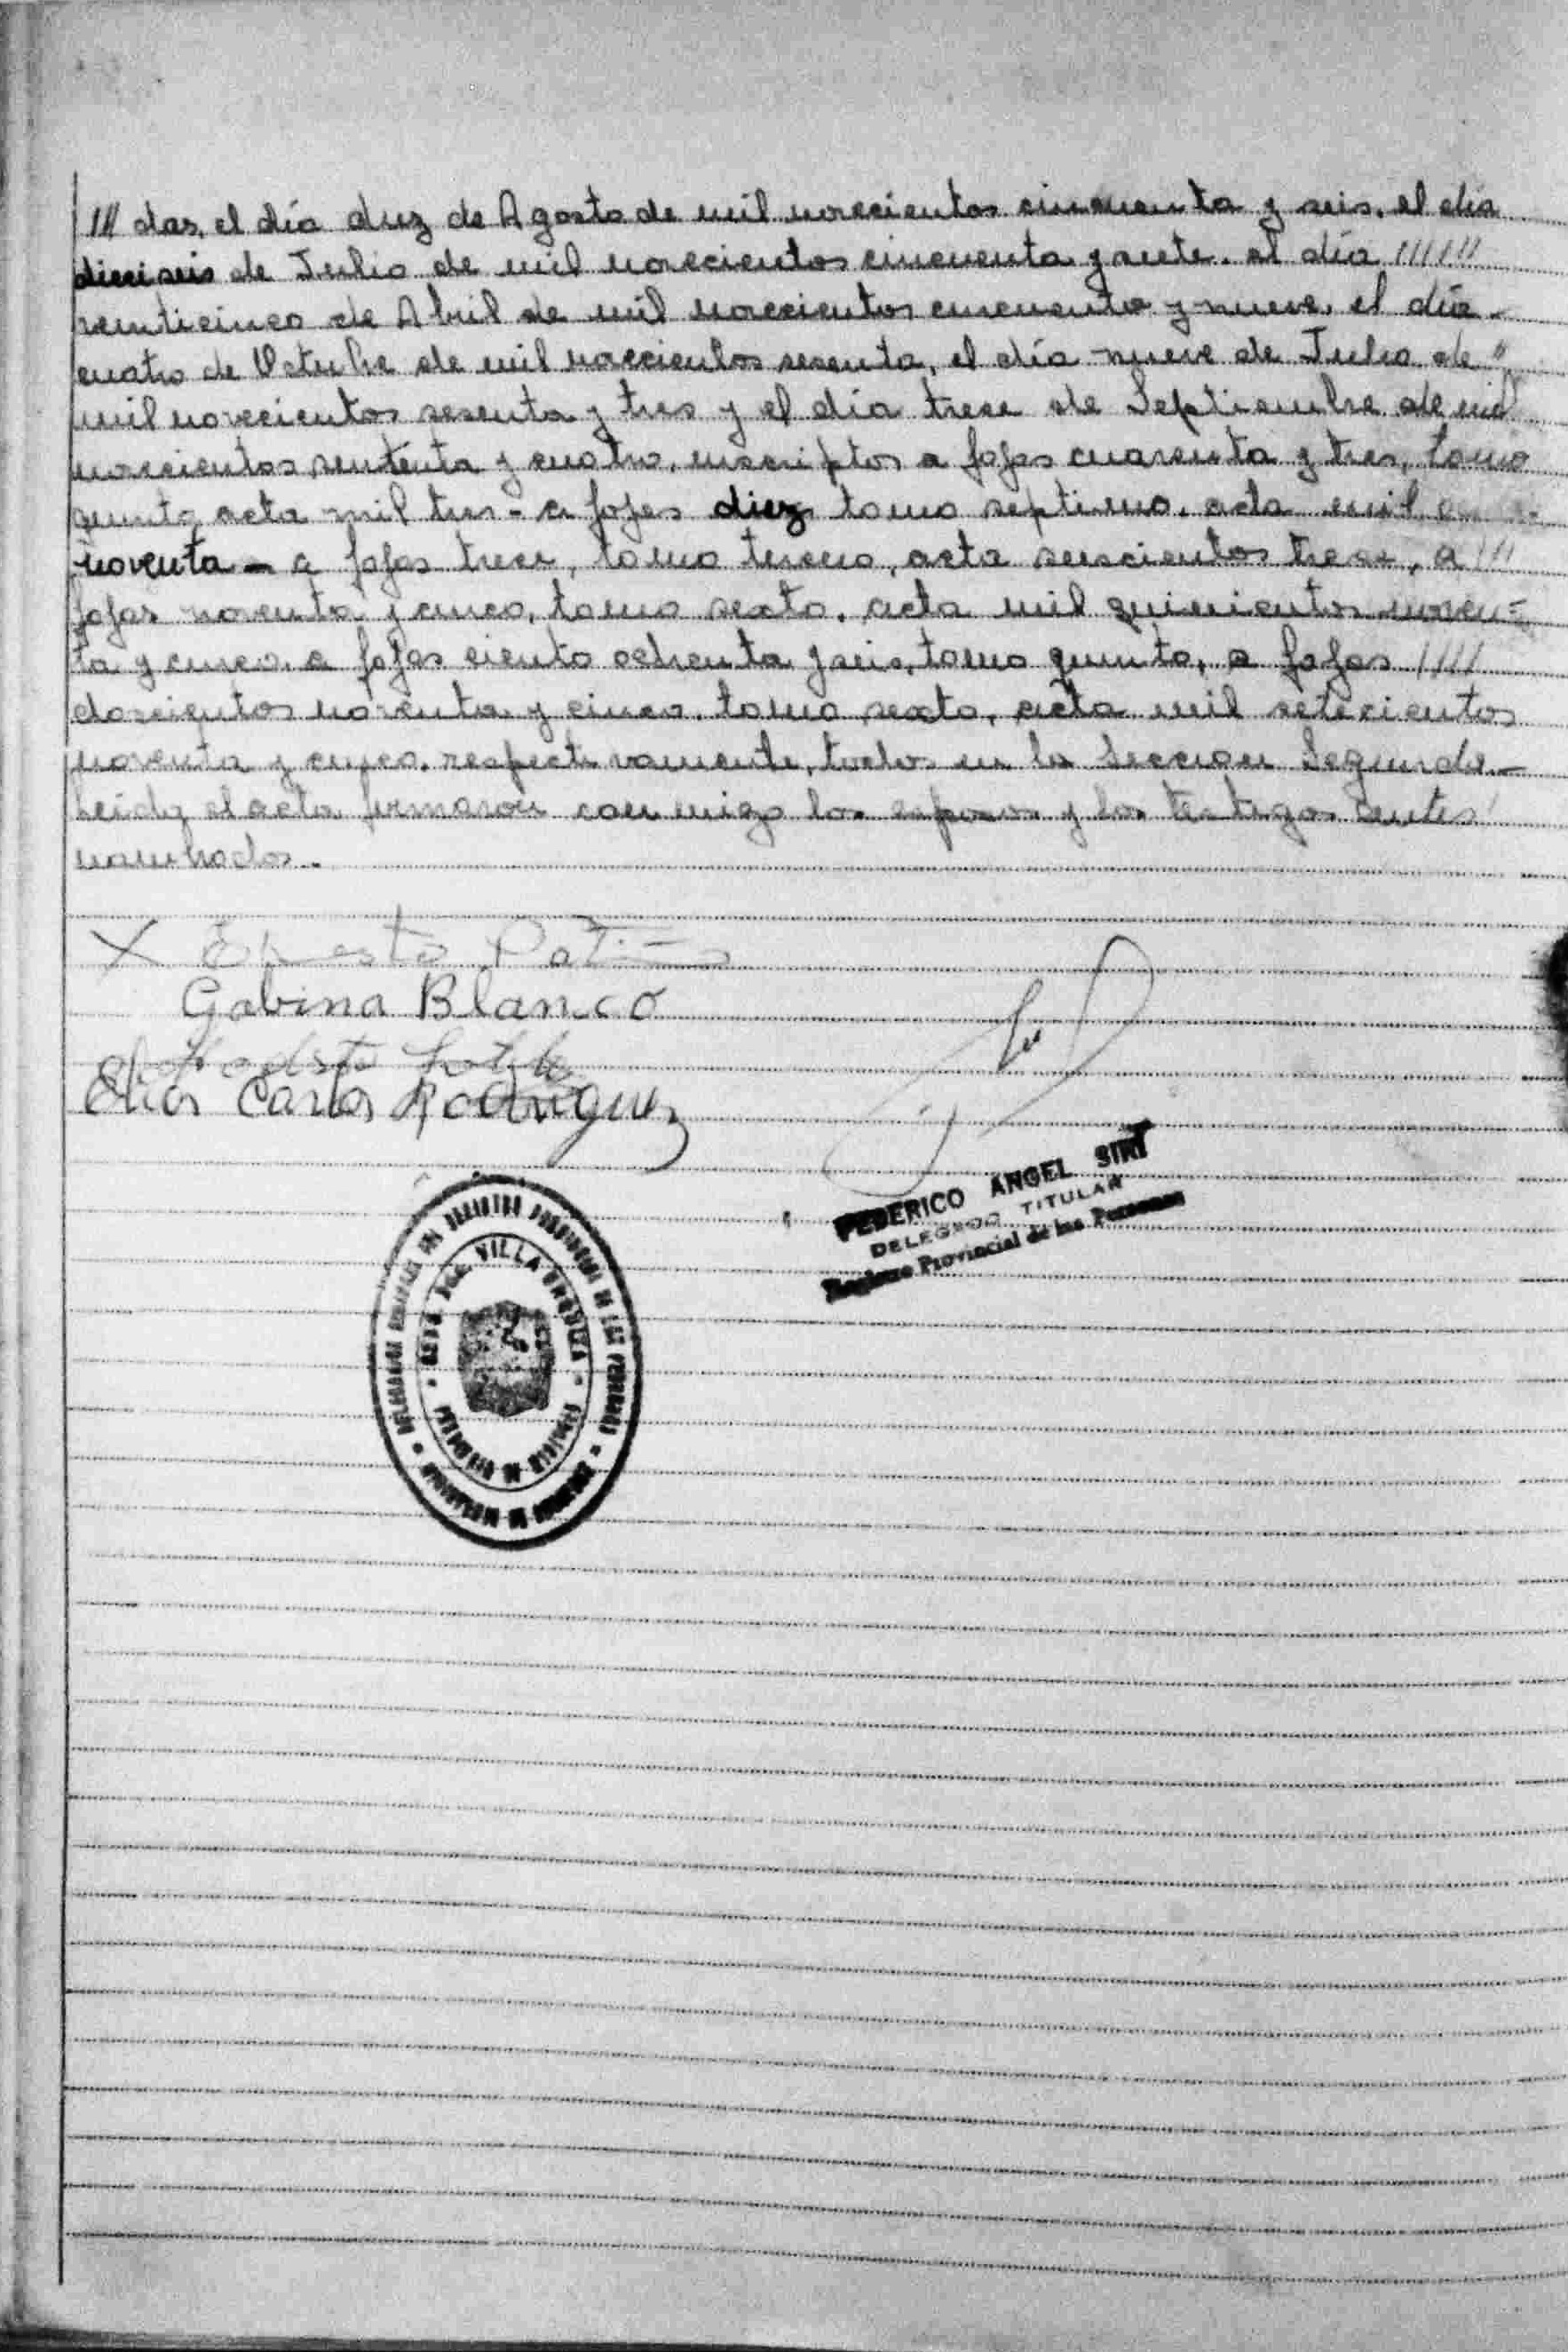 /// das, el día diez de Agosto de mil novecientos cincuenta y seis, el día
dieciseis de Julio de mil novecientos cincuenta y siete. el día //////
veinticinco de Abril de mil novecientos cincuenta y nueve, el día -
cuatro de Octubre de mil novecientos sesenta, el día nueve de Julio de "
mil novecientos sesenta y tres y el día trece de Septiembre de mil
novecientos sententa y cuatro, inscriptos a fojas cuarenta y tres, tomo
quinto acta mil tres - a fojas diez tomo septimo, acta mil
noventa - a fojas trece, tomo tercero, acta seiscientos trece, a ///
fojas noventa y cinco, tomo sexto, acta mil quinientos noven=
ta y cinco, a fojas ciento ochenta y seis, tomo quinto, a fojas ////
doscientos noventa y cinco. tomo sexto, acta mil setecientos
noventa y cinco, respectivamente, todos en la Seccion Segunda.-
Leida el acta firmaron conmigo los esposos y los testigos antes
nombrados.
X Ernesto Patiño
Gabina Blanco
Elias Carlos Rodriguez
FEDERICO ANGEL SIRI
DELEGADO TITULAR
Registro Provincial de las Personas
REGISTRO PROVINCIAL DE LAS PERSONAS
VILLA ANGELA
PROVINCIA DE